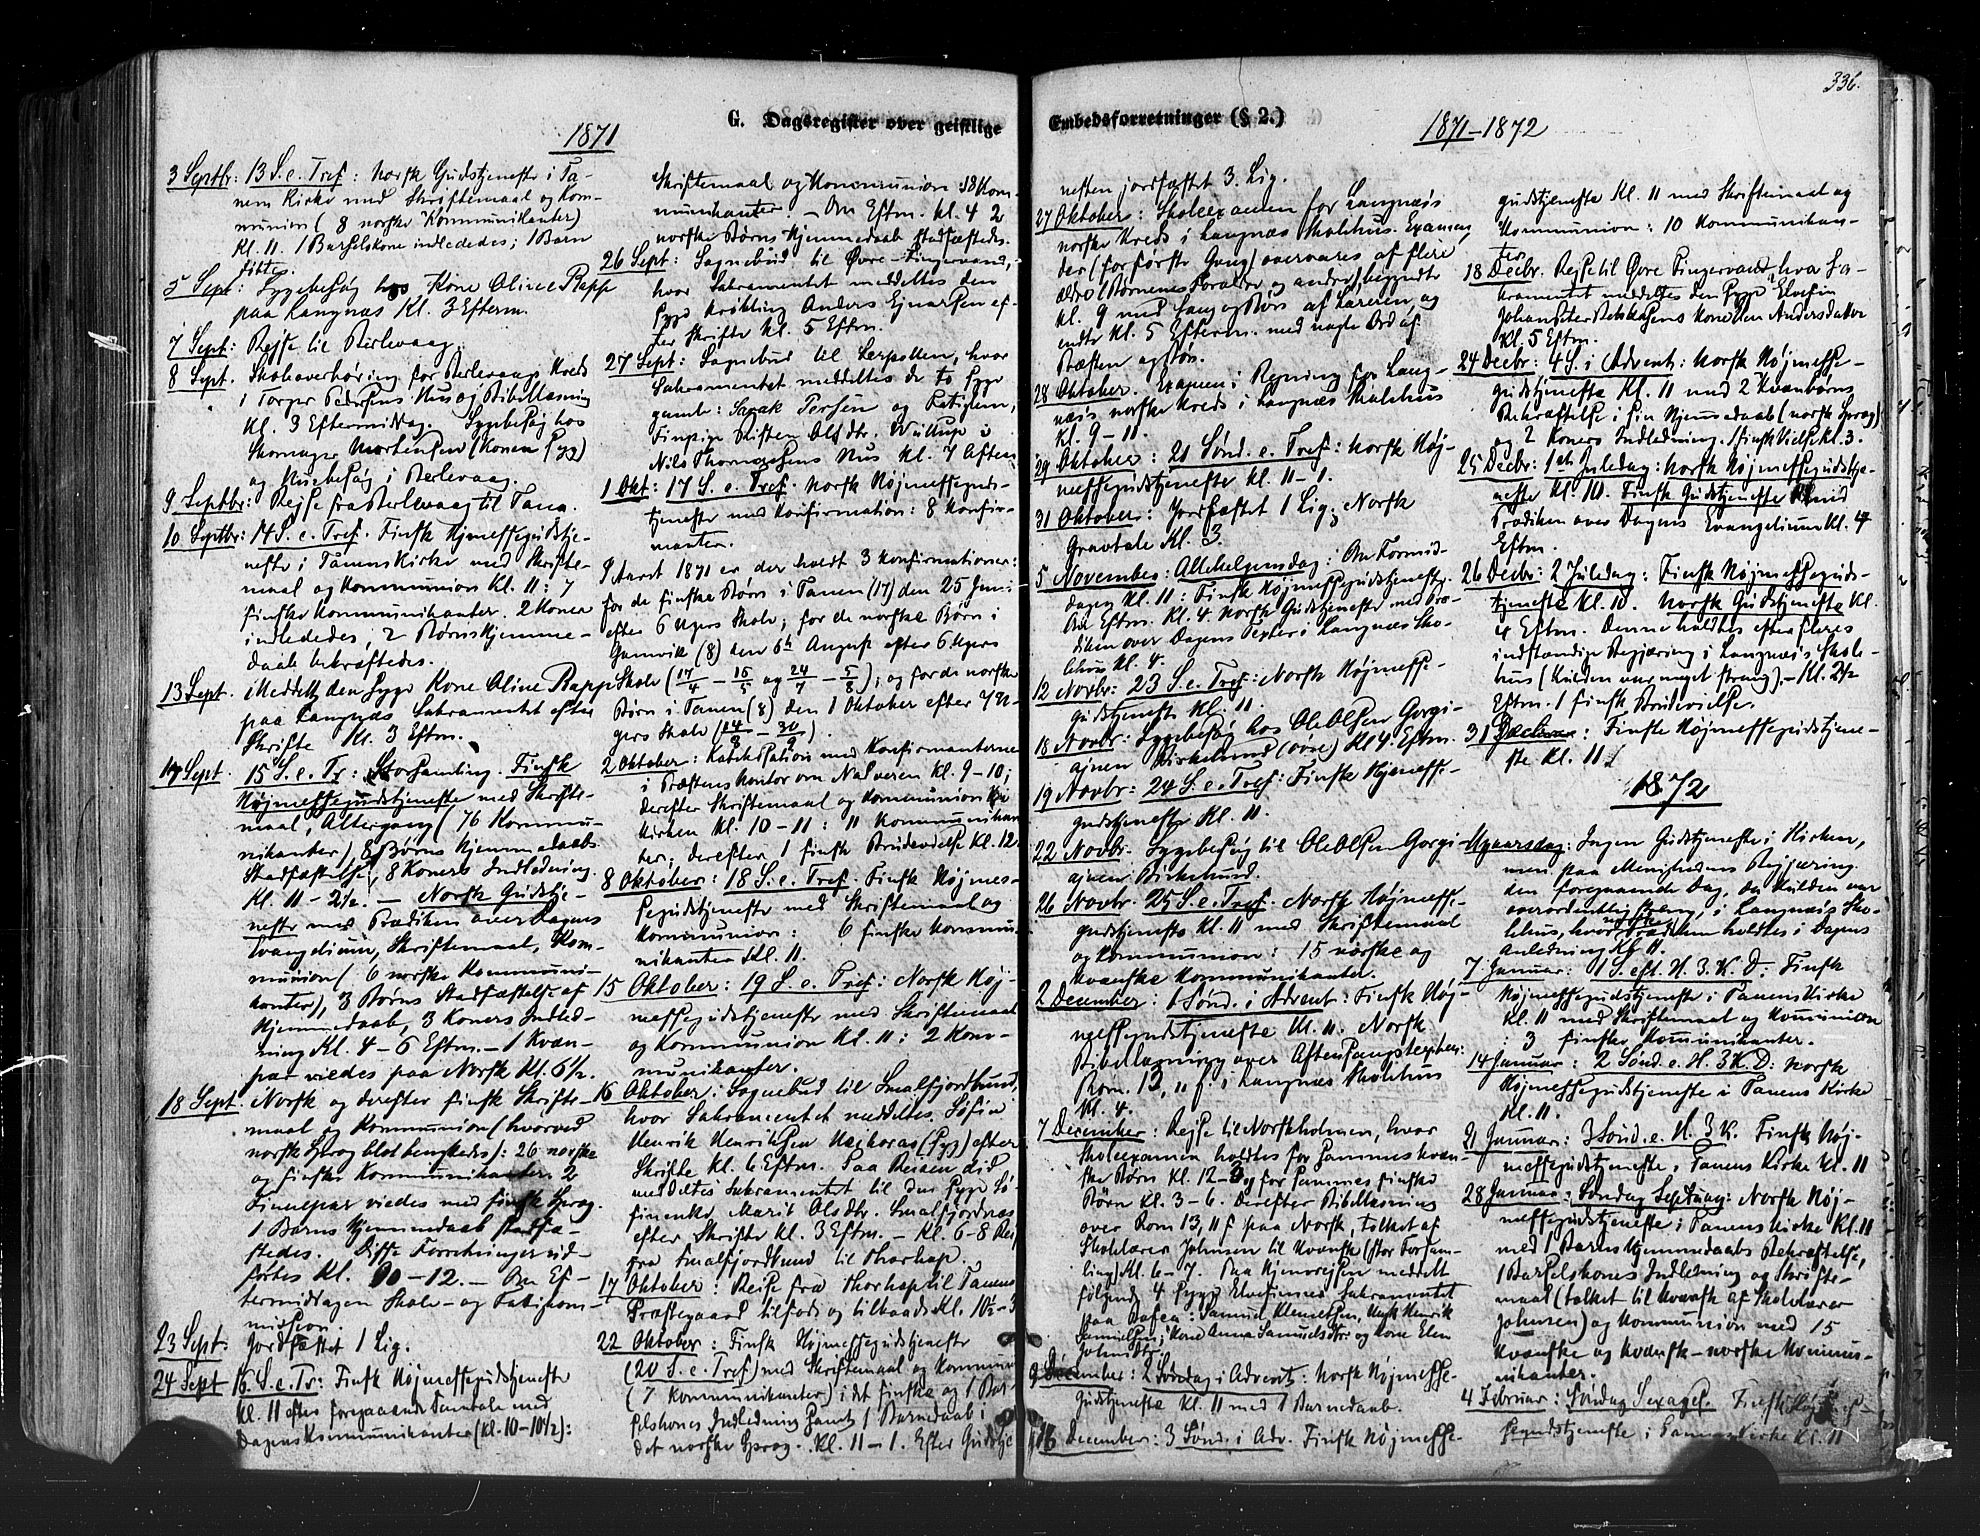 336.
G. Dagsregister over geistlige
Embedsforretninger (§ 2.)
1871
1871-1872
3 Septbr: 13 S. e. Tref: Norsk Gudstjeneste i Ta-
nens Kirke med Skriftemaal og Kom-
munion (8 norske Kommunikanter)
Kl. 11. 1 Barselskone indlededes; 1 Barn
døbte.
5 Sept: Sygebesøg hos Kone Aline Rapp
paa Langnæs Kl. 3 Efterm.
7 Sept: Rejse til Berlevaag.
8 Sept. Skoleoverhøring for Berlevaags Kreds
i Torger Pedersens Hus og Bibellæsning
Kl. 3 Eftermiddag. Sygebesøg hos
Skomager Mortensen (Konen syg)
og Husbesøg i Berlevaag.
9 Septbr: Rejse fra Berlevaag til Tana.
10 Septbr: 14 S. e. Tref. Finsk Højmessegudstje-
neste i Tanens Kirke med Skrifte-
maal og Kommunion Kl. 11: 7
finske Kommunikanter. 2 Koner
indlededes; 2 Børns Hjemme-
daab bekræftedes.
13 Sept. Meddelt den syge Kone Aline Rapp
paa Langnæs Sakramentet efter
Skrifte Kl. 3 Eftm.
17 Sept. 15 S. e. Tr: Storsamling. Finsk
Højmessegudstjeneste med Skrifte-
maal, Altergang (76 Kommu-
nikanter), 8 Børns Hjemmedaabs
Stadfæstelse, 8 Koners Indledning.
Kl. 11-2½. — Norsk Gudstje-
neste med Prædiken over Dagens
Evangelium, Skriftemaal, Kom-
munion (6 norske Kommuni-
kanter), 3 Børns Stadfæstelse af
Hjemmedaab, 3 Koners Indled-
ning Kl. 4-6 Eftm. — 1 Kvæn-
par viedes paa Norsk Kl. 6½.
18 Sept. Norsk og derefter finsk Skrifte-
maal og Kommunion (hvorved
norsk Sprog blot benyttedes): 26 norske
og finske Kommunikanter. 2
Finnepar viedes med finsk Sprog.
1 Barns Hjemmedaab stadfæ-
stedes. Disse Forretninger ud-
førtes Kl. 10-12. — Om Ef-
termiddagen Skole- og Fattigkom-
mission.
23 Sept. Jordfæstet 1 Lig.
24 Sept 16. S. e. Tr: Finsk Højmessegudstjeneste
Kl. 11 efter foregaaende Samtale med
Dagens Kommunikanter (Kl. 10-10½):
Skriftemaal og Kommunion 18 Kom-
munikanter. — Om Eftm. Kl. 4 2
norske Børns Hjemmedaab stadfæstedes.
26 Sept: Sognebud til Øvre-Fingervand,
hvor Sakramentet meddeltes den
syge Krøbling Anders Ejnarsen ef-
ter Skrifte Kl. 5 Eftm.
27 Sept: Sognebud til Lerpollen, hvor
Sakramentet meddeltes de to syge
gamle: Sarak Persen og Fatiglem,
Finpige Kirsten Olsdtr. Wullup i
Nils Thomassens Hus Kl. 7 Aften
1 Okt: 17 S. e. Tref. Norsk Højmessegudst-
tjeneste med Konfirmation: 8 Konfir-
manter.
I Aaret 1871 er der holdt 3 Konfirmationer:
for de finske Børn i Tanen (17) den 25 Juni
efter 6 Ugers Skole; for de norske Børn i
Gamvik (8) den 6te August efter 6 Ugers
Skole (17/4 - 15/5 og 24/7 - 5/8); og for de norske
Børn i Tanen (8) den 1 Oktober efter 7 U-
gers Skole (14/8 - 30/9).
2 Oktober: Katekisation med Konfirmanterne
i Præstens Kontor om Nadveren Kl. 9-10;
derefter Skriftemaal og Kommunion i
Kirken Kl. 10-11: 11 Kommunikan
ter; derefter 1 finsk Brudevielse Kl. 12
8 Oktober: 18 S. e. Tref. Finsk Højmes-
segudstjeneste med Skriftemaal og
Kommunion: 6 finske Kommu-
nikanter Kl. 11.
15 Oktober: 19 S. e. Tref: Norsk Høj-
messegudstjeneste med Skriftemaal
og Kommunion Kl. 11: 2 Kom-
munikanter.
16 Oktober: Sognebud til Smalfjordbund,
hvor Sakramentet meddeltes Søfin
Henrik Henriksen (syg) efter
Skrifte Kl. 6 Eftm. Paa Reisen did
meddeltes Sakramentet til den syge Sø-
finenke Marit Olsdtr. Smalfjordnæs
efter Skrifte Kl. 3 Eftm. — Kl. 6-8 Rejs
fra Smalfjordbund til Skarhap.
17 Oktober: Rejse fra Skarhap til Tanens
Præstegaard tilfods og tilbaads Kl. 10½-3
22 Oktober: Finsk Højmessegudstjeneste
(20 S. e. Tref) med Skriftemaal og Kommun
(7 Kommunikanter) i det finske og 1 Bar-
selskones Indledning samt 1 Barnedaab i
det norske Sprog. Kl. 11-1. Efter Gudstje
nesten jordfæstet 3 Lig.
27 Oktober: Skoleexamen for Langnæs
norske Kreds i Langnæs Skolehus. Examen,
der (for første Gang) overvares af flere
Ældre (Børnenes Forældre og andre), begyndte
Kl. 9 med Sang og Bøn af Læreren, og
endte Kl. 5 Efterm. med nogle Ord af
Præsten og Bøn.
28 Oktober. Examen i Regning for Lang-
næs norske Kreds i Langnæs Skolehus
Kl. 9-11.
29 Oktober: 21 Sønd. e. Tref: Norsk Høj-
messegudstjeneste Kl. 11-1.
31 Oktober: Jordfæstet 1 Lig; Norsk
Gravtale Kl. 3.
5 November: Allehelgensdag: Om Formid-
dagen Kl. 11: Finsk Højmessegudstjeneste.
Om Eftm. Kl. 4. Norsk Gudstjeneste med Præ-
diken over Dagens Texter i Langnæs Sko-
lehus Kl. 4.
12 Novbr: 23 S. e. Tref: Norsk Højmesse-
gudstjeneste Kl. 11.
18 Novbr: Sygebesøg hos Ole Olsen Gorgi-
ajnen Birkelund (øvre) Kl 4. Eftm.
19 Novbr: 24 S. e. Tref: Finsk Højmesse-
gudstjeneste Kl. 11.
22 Novbr. Sygebesøg til Ole Olsen Gorgi-
ajnen Birkelund.
26 Novbr. 25 S. e. Tref. Norsk Højmesse-
gudstjeneste Kl. 11 med Skriftemaal
og Kommunion: 15 norske og
kvænske Kommunikanter.
2 December: 1 Sønd. i Advent: Finsk Høj-
messegudstjeneste Kl. 11. Norsk
Bibellæsning over Aftensangsteksten:
Rom. 13, 11 f. i Langnæs Skolehus
Kl. 4.
7 December: Rejse til Norskholmen, hvor
Skoleexamen holdtes for sammes kvæn-
ske Børn Kl. 12-3 og for sammes finske
Børn Kl. 3-6. Derefter Bibellæsning
over Rom 13, 11 f paa Norsk, tolket af
Skolelærer Johnsen til Kvænsk (stor Forsam-
ling) Kl. 6-7. Paa Hjemrejsen meddelt
følgende 4 syge Elvefinner Sakramentet
paa Bosea: Samuel Klemetsen, Henrik
Samuelsen, Kone Anna Samuelsdtr og Kone Elen
Johnsdtr.
9 December: 2 Søndag i Advent: Norsk Højmesse-
gudstjeneste Kl. 11 med 1 Barnedaab.
16 December: 3 Sønd. i Adv. Finsk Højmesse-
gudstjeneste Kl. 11 med Skriftemaal og
Kommunion: 10 Kommunikan-
ter
18 Decbr. Rejse til Øvre Fingervand, hvor Sa-
kramentet meddeltes den syge Elvefin
Johans Kone Elen Andersdatter
Kl. 5 Eftm.
24 Decbr: 4 S. i Advent: Norsk Højmesse-
gudstjeneste Kl. 11 med 2 Kvænbørns
Bekræftelse i sin Hjemmedaab (norsk Sprog)
og 2 Koners Indledning. 1 finsk Vielse Kl. 3.
25 Decbr: 1ste Juledag: Norsk Højmessegudstje-
neste Kl. 10. Finsk Gudstjeneste med
Prædiken over Dagens Evangelium Kl. 4
Eftm.
26 Decbr: 2 Juledag: Finsk Højmessegud-
stjeneste Kl. 10. Norsk Gudstjeneste Kl.
4 Eftm. Denne holdtes efter fleres
indstændige Begjæring i Langnæs Skole-
hus (Kulden var meget streng). — Kl. 2½
Eftm. 1 finsk Brudevielse.
31 December: Finsk Højmessegudstjene-
ste Kl. 11.
1872
Nyaarsdag: Ingen Gudstjeneste i Kirken,
men paa Menighedens Begjæring
den foregaaende Dag, da Kulden var
overordentlig streng, i Langnæs Sko-
lehus, hvor norsk Prædiken holdtes i Dagens
Anledning Kl. 11.
7 Januar: 1 S. eft. H. 3. K. D: Finsk
Højmessegudstjeneste i Tanens Kirke
Kl. 11 med Skriftemaal og Kommunion
: 3 finske Kommunikanter.
14 Januar: 2 Sønd. e. H. 3 K. D: Norsk
Højmessegudstjeneste i Tanens Kirke
Kl. 11.
21 Januar: 3 Sønd. e. H. 3 K. Finsk Høj-
messegudstjeneste i Tanens Kirke Kl. 11
28 Januar: Søndag Septuag: Norsk Høj-
messegudstjeneste i Tanens Kirke Kl. 11
med 1 Barns Hjemmedaabs Bekræftelse,
1 Barselskones Indledning og Skrifte-
maal (tolket til Kvænsk af Skolelærer
Johnsen) og Kommunion med 15
kvænske og kvænsk-norske Kommu-
nikanter.
4 Februar: Søndag Sexages. Finsk Højmes-
segudstjeneste i Tanens Kirke Kl. 11